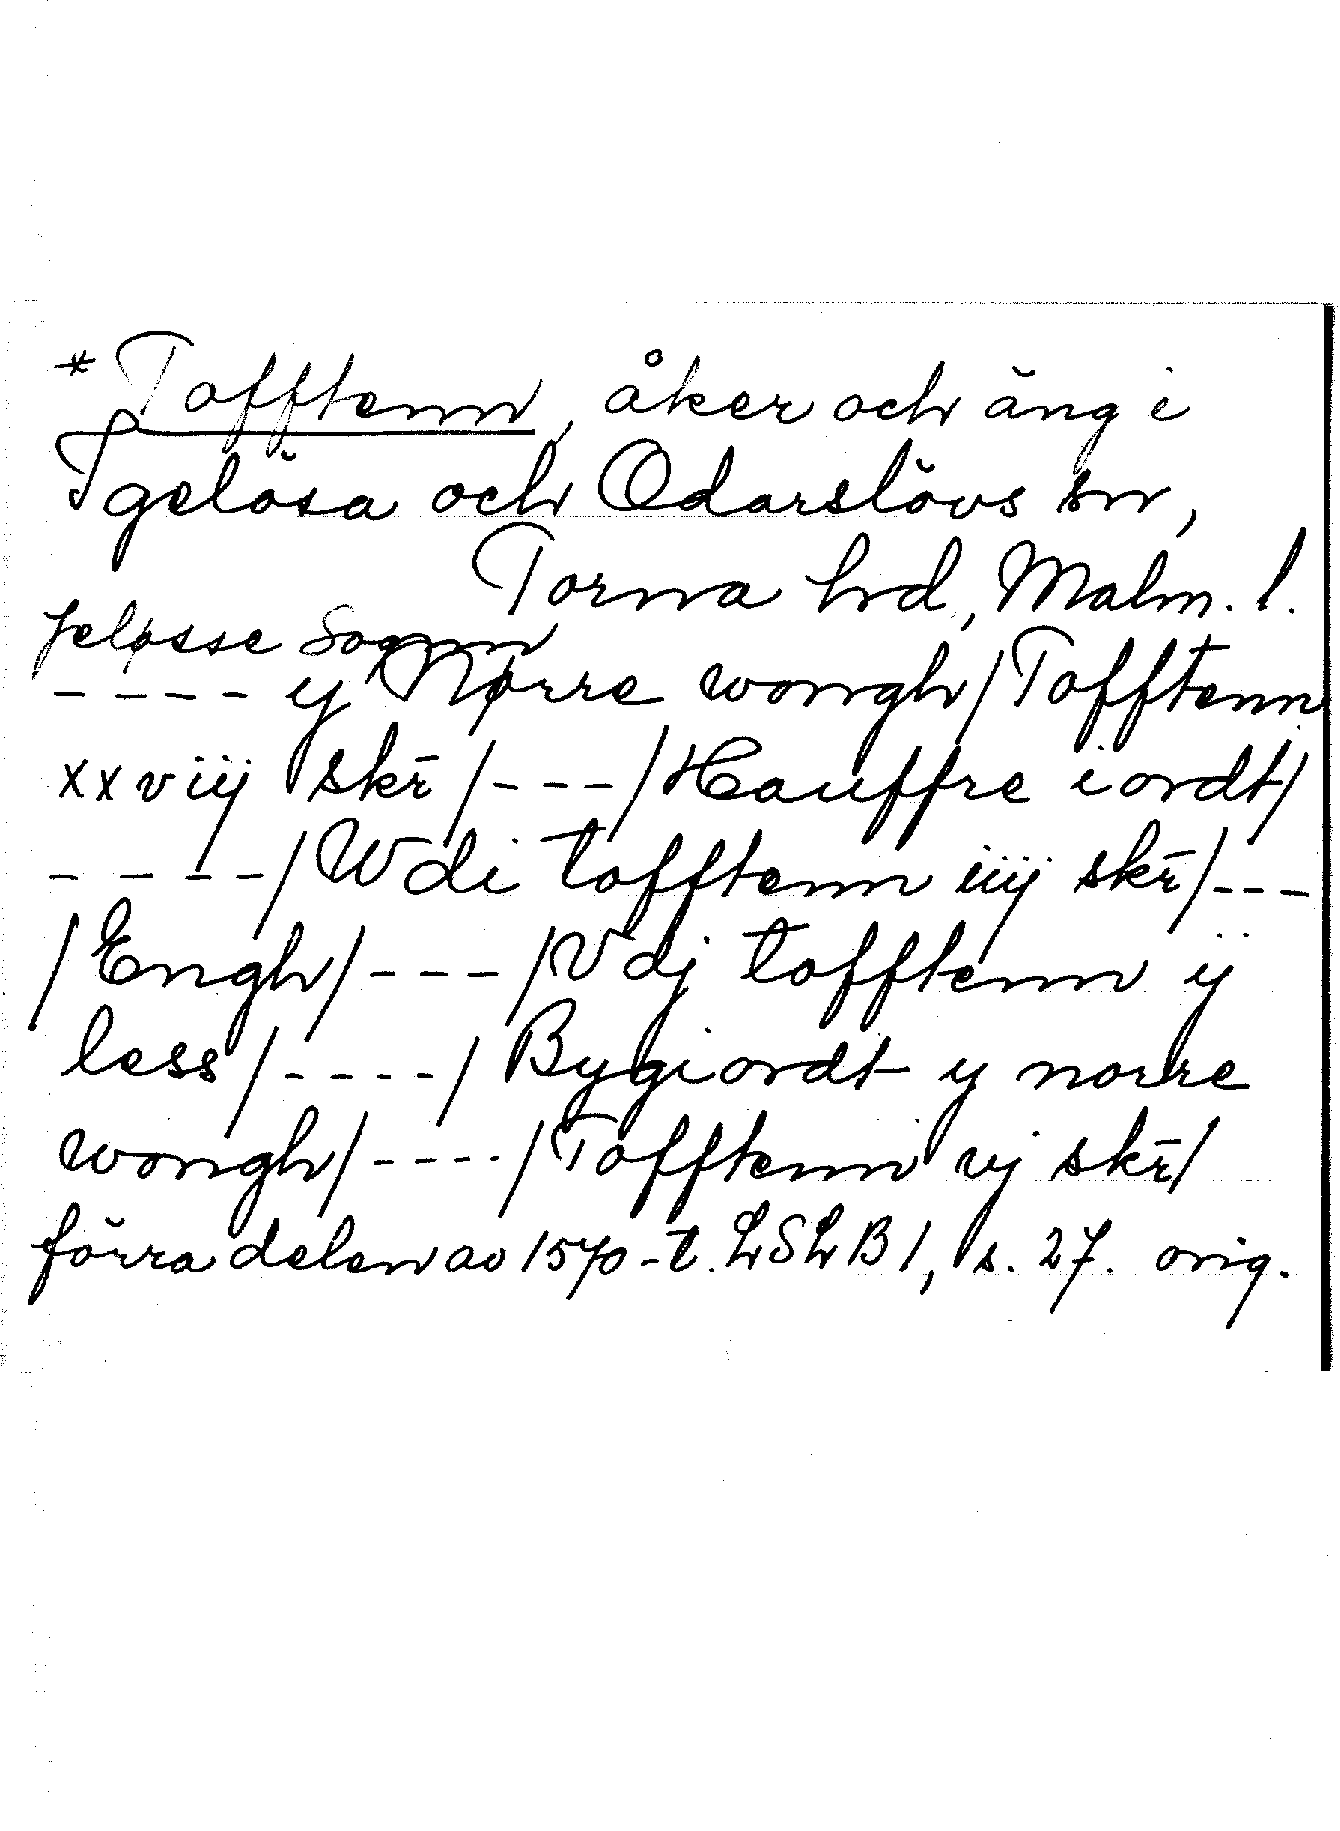 * Tofftenn, åker och äng i
Igelösa och Odarslövs snr,
Torna hrd, Malm. l.
Jeløsse Sognn
- - - - y Nørre wongh / Tofftenn
xxviij skr̄ / - - - / Hauffre iordt /
- - - - / Wdi tofftenn iiij skr̄ / - - -
/ Engh / - - - / Vdj tofftenn ij
less / - - - - / Bygiordt y norre
wongh / - - - - / Tofftenn vj skr̄ /
förra delen av 1570-t. LSLB 1, s. 27. orig.